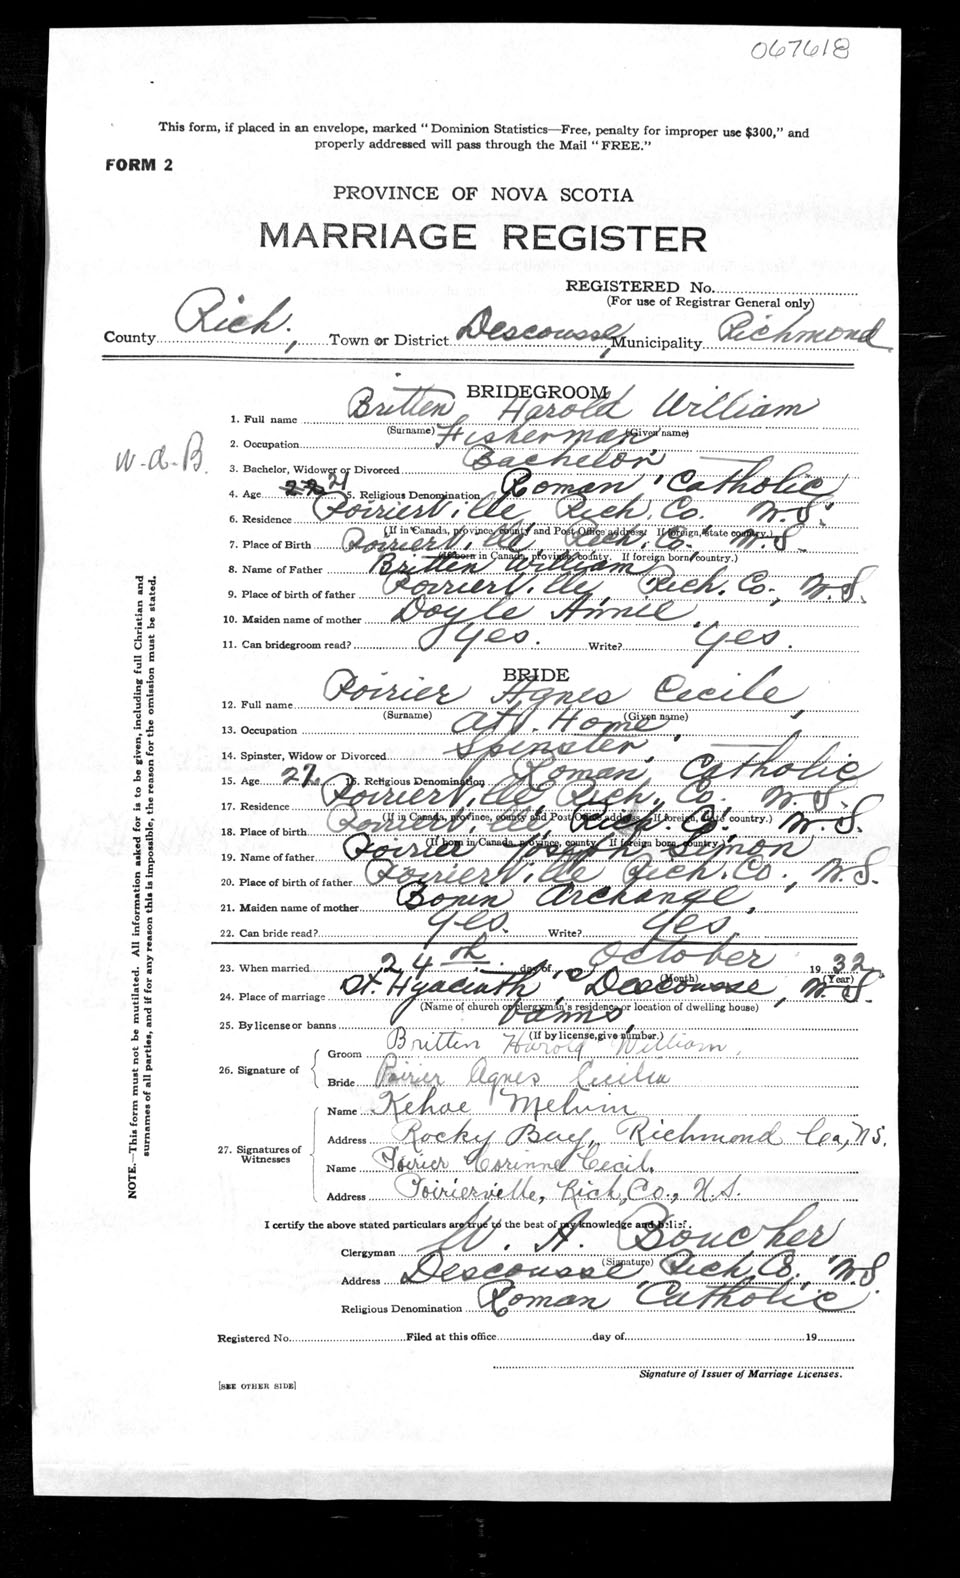 067618
This form, if placed in an envelope, marked "Dominion Statistics—Free, penalty for improper use $300," and
properly addressed will pass through the Mail "FREE."
FORM 2
PROVINCE OF NOVA SCOTIA
MARRIAGE REGISTER
REGISTERED No.
(For use of Registrar General only)
County Rich. , Town or District Descousse, Municipality Richmond
BRIDEGROOM
1. Full name Britten, Harold William
(Surname) (Given name)
2. Occupation Fisherman
W-d-B.
3. Bachelor, Widower or Divorced Bachelor
4. Age 21 5. Religious Denomination Roman Catholic
6. Residence Poirierville Rich. Co. N.S.
(If in Canada, province, county and Post Office address. If foreign, state country.)
7. Place of Birth Poirierville Rich. Co. N.S.
(If born in Canada, province, county. If foreign born, country.)
8. Name of Father Britten William
9. Place of birth of father Poirierville, Rich. Co., N.S.
10. Maiden name of mother Doyle Annie
11. Can bridegroom read? Yes. Write? Yes.
BRIDE
12. Full name Poirier Agnes Cecile,
(Surname) (Given name)
13. Occupation At Home
14. Spinster, Widow or Divorced Spinster
15. Age 27 16. Religious Denomination Roman Catholic
17. Residence Poirierville Rich. Co. N.S.
(If in Canada, province, county and Post Office address. If foreign, state country.)
18. Place of birth Poirierville, Rich. Co., N.S.
(If born in Canada, province, county. If foreign born, country.)
19. Name of father Poirier Joseph Simon
20. Place of birth of father Poirierville Rich. Co., N.S.
21. Maiden name of mother Bonin Archange,
22. Can bride read? Yes. Write? Yes.
23. When married 24th day of October 1932
(Month) (Year)
24. Place of marriage St. Hyacinth, Descousse, N.S.
(Name of church or clergyman's residence or location of dwelling house)
25. By license or banns banns
(If by license, give number.)
26. Signature of
Groom Britten Harold William,
Bride Poirier Agnes Cecilia
27. Signatures of Witnesses
Name Kehoe Melvin
Address Rocky Bay, Richmond Co, N.S.
Name Poirier Corinne Cecil.
Address Poirierville, Rich, Co., N.S.
I certify the above stated particulars are true to the best of my knowledge and belief.
Clergyman W. A. Boucher
(Signature)
Address Descousse Rich. Co. N.S.
Religious Denomination Roman Catholic
Registered No. Filed at this office day of 19
Signature of Issuer of Marriage Licenses.
[SEE OTHER SIDE]
NOTE.—This form must not be mutilated. All information asked for is to be given, including full Christian and
surnames of all parties, and if for any reason this is impossible, the reason for the omission must be stated.